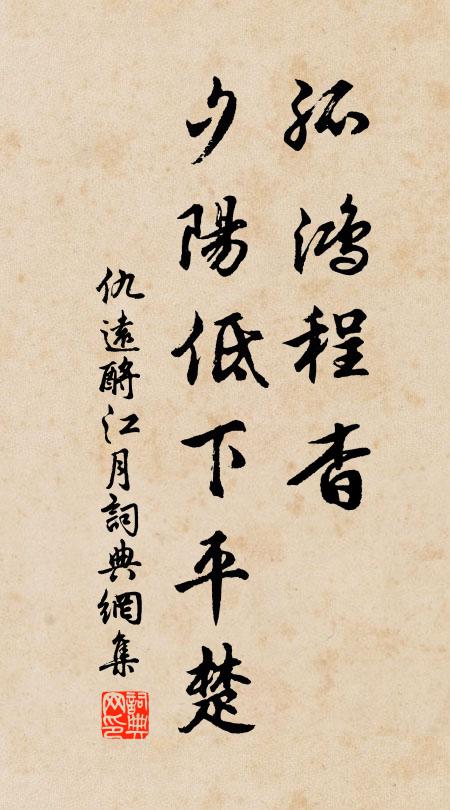 孤鴻程杳
夕陽低下平楚
仇遠酹江月詞典網集
詞典网印